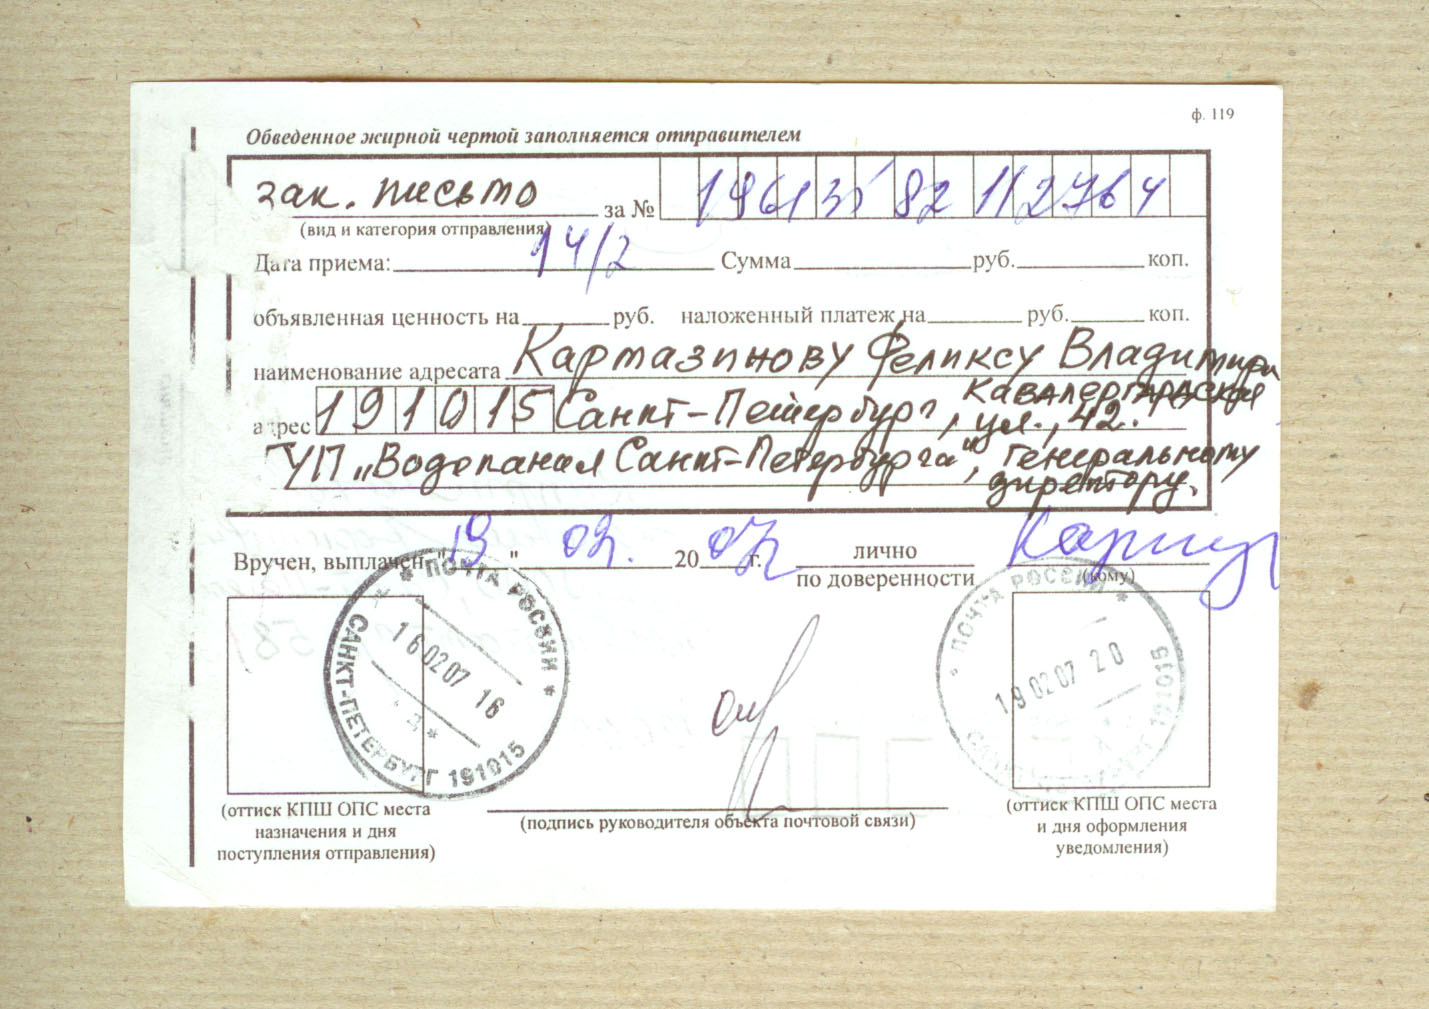 ф. 119
Обведенное жирной чертой заполняется отправителем
зак. письмо за №
(вид и категория отправления)
Дата приема: 14/2 Сумма руб. коп.
объявленная ценность на руб. наложенный платеж на руб. коп.
наименование адресата Кармазинову Феликсу Владимиро
адрес 191015 Санкт-Петербург, Кавалергардская
ул., 42.
ГУП „Водоканал Санкт-Петербурга", генеральному
директору.
Вручен, выплачен "19" 02. 2007 г. лично
по доверенности
(кому)
* ПОЧТА РОССИИ *
16 02 07 16
САНКТ-ПЕТЕРБУРГ 191015
* ПОЧТА РОССИИ *
19 02 07 20
САНКТ-ПЕТЕРБУРГ 191015
(оттиск КПШ ОПС места
назначения и дня
поступления отправления)
(подпись руководителя объекта почтовой связи)
(оттиск КПШ ОПС места
и дня оформления
уведомления)